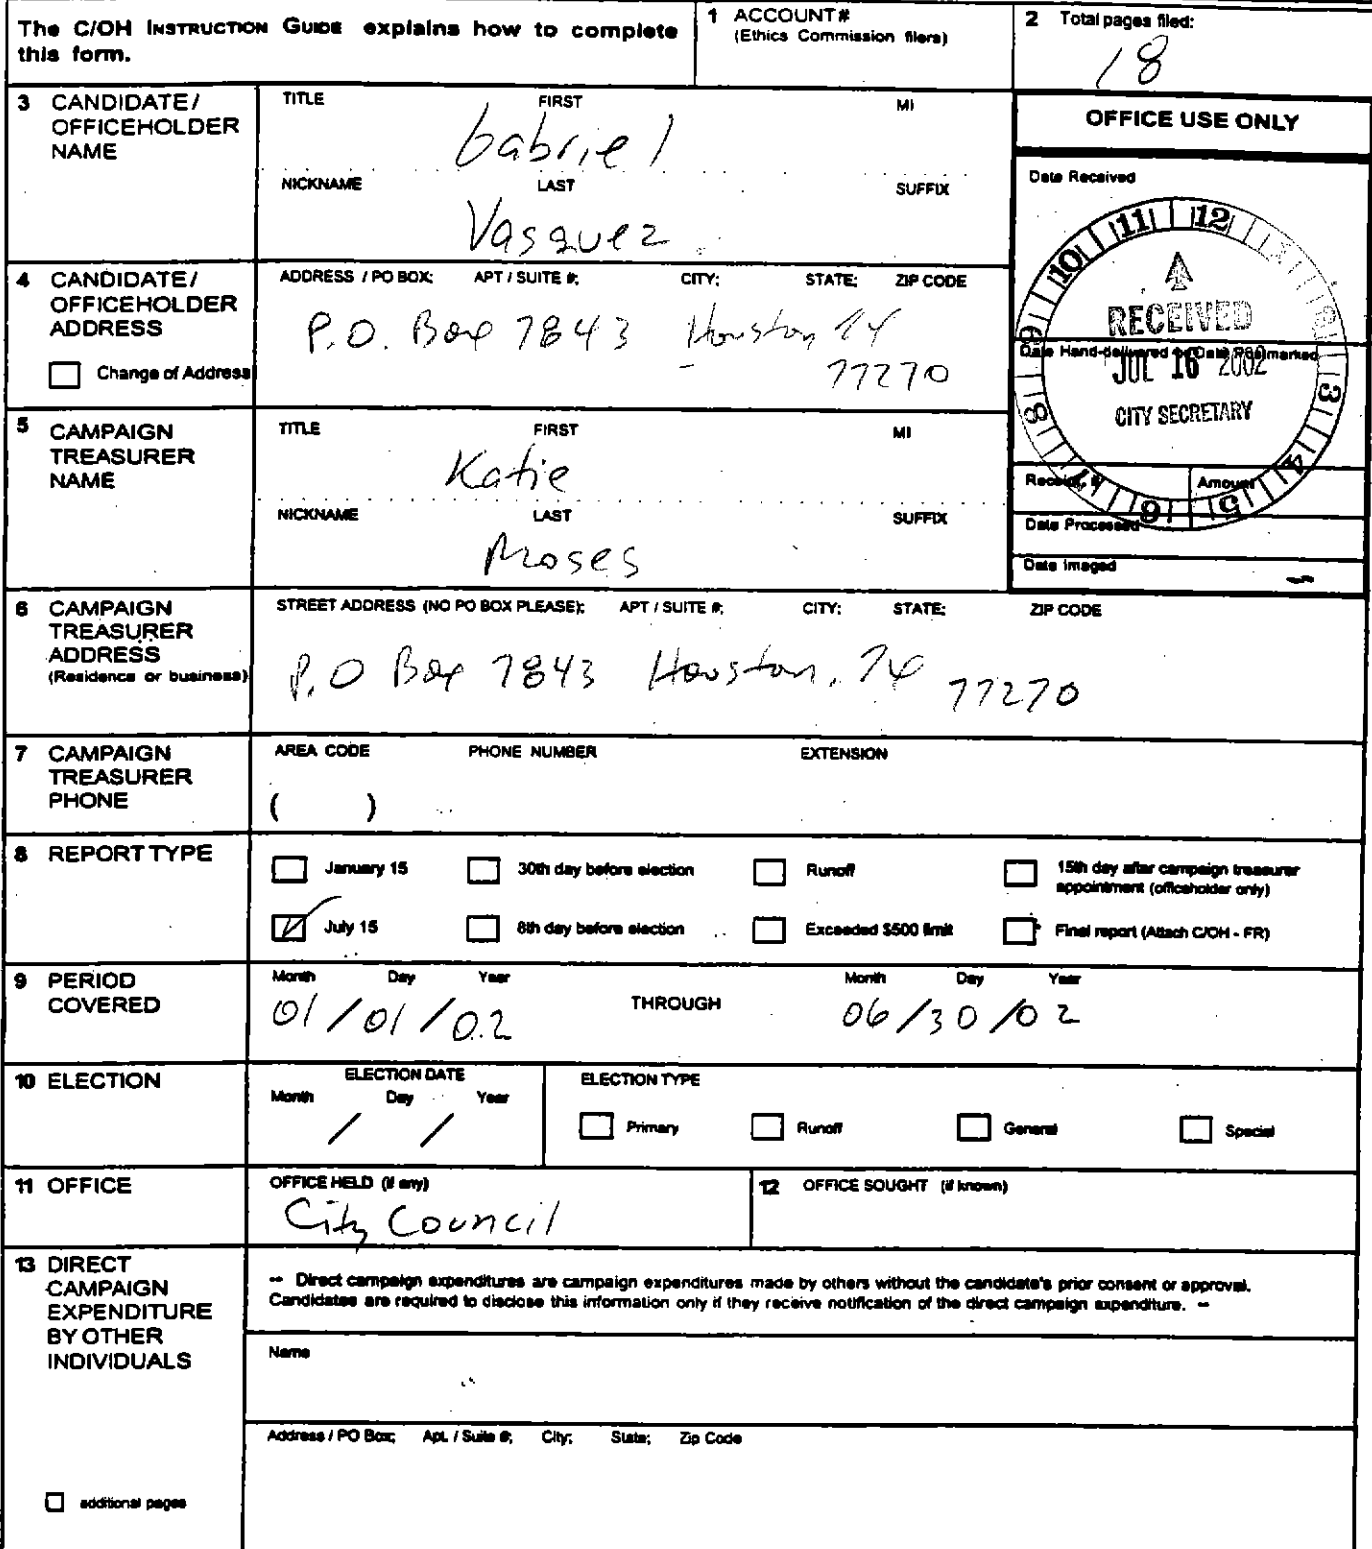 The C/OH INSTRUCTION GUIDE explains how to complete this form.
1 ACCOUNT #
(Ethics Commission filers)
2 Total pages filed:
18
3 CANDIDATE / OFFICEHOLDER NAME
TITLE FIRST MI
Gabriel
NICKNAME LAST SUFFIX
Vasquez
OFFICE USE ONLY
Date Received
11 12 3 4 5 6 7 8 9 10
RECEIVED
Date Hand-delivered or Date Postmarked
JUL 16 2002
CITY SECRETARY
Receipt # Amount
Date Processed
Date Imaged
4 CANDIDATE / OFFICEHOLDER ADDRESS
Change of Address
ADDRESS / PO BOX; APT / SUITE #; CITY; STATE; ZIP CODE
P.O. Box 7843 Houston TX
77270
5 CAMPAIGN TREASURER NAME
TITLE FIRST MI
Katie
NICKNAME LAST SUFFIX
Moses
6 CAMPAIGN TREASURER ADDRESS
(Residence or business)
STREET ADDRESS (NO PO BOX PLEASE); APT / SUITE #; CITY; STATE; ZIP CODE
P.O Box 7843 Houston, TX 77270
7 CAMPAIGN TREASURER PHONE
AREA CODE PHONE NUMBER EXTENSION
( )
8 REPORT TYPE
January 15 30th day before election Runoff 15th day after campaign treasurer appointment (officeholder only)
July 15 8th day before election Exceeded $500 limit Final report (Attach C/OH - FR)
9 PERIOD COVERED
Month Day Year Month Day Year
01/01/02 THROUGH 06/30/02
10 ELECTION
ELECTION DATE
Month Day Year
/ /
ELECTION TYPE
Primary Runoff General Special
11 OFFICE
OFFICE HELD (if any)
City Council
12 OFFICE SOUGHT (if known)
13 DIRECT CAMPAIGN EXPENDITURE BY OTHER INDIVIDUALS
-- Direct campaign expenditures are campaign expenditures made by others without the candidate's prior consent or approval.
Candidates are required to disclose this information only if they receive notification of the direct campaign expenditure. --
Name
Address / PO Box; Apt. / Suite #; City; State; Zip Code
additional pages